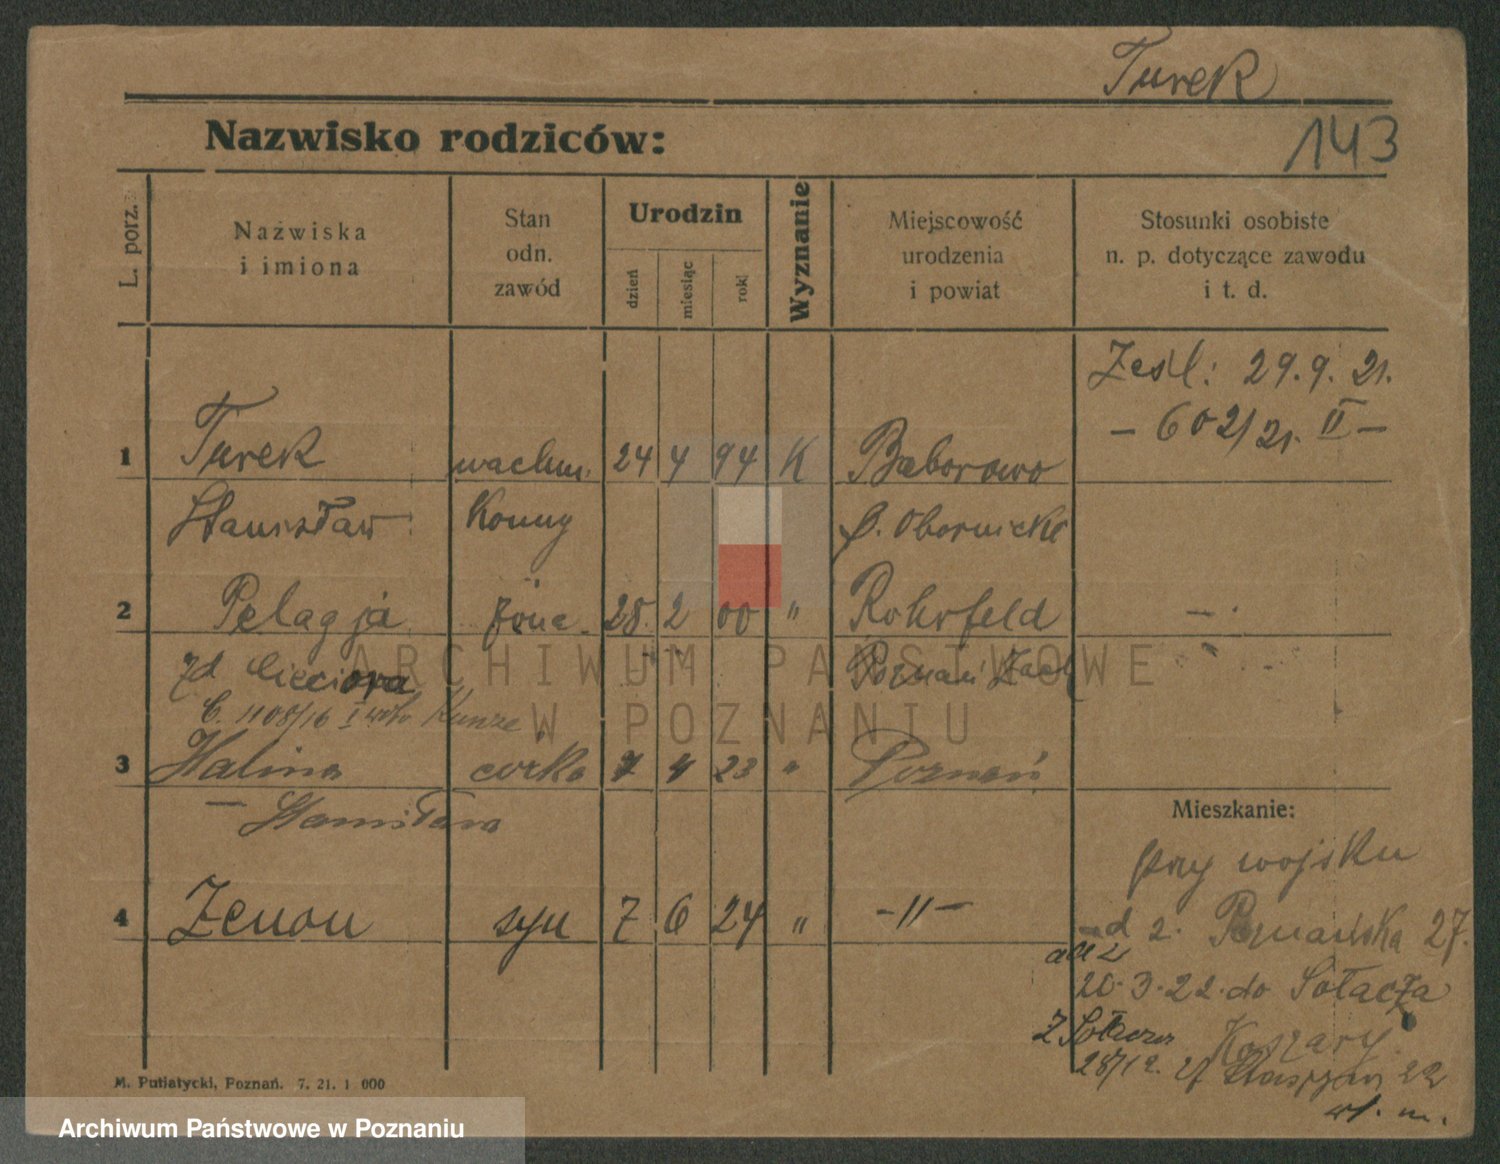 Turek
Nazwisko rodziców:
143
L. porz.
Nazwiska
i imiona
Stan
odn.
zawód
Urodzin
dzień
miesiąc
rok
Wyznanie
Miejscowość
urodzenia
i powiat
Stosunki osobiste
n. p. dotyczące zawodu
i t. d.
Zesl: 29.9.21.
- 602/21. II -
1 Turek wachm. 24 4 94 K Baborowo
Stanisław Konny p. Obornicki
2 Pelagja żona 28. 2 00 " Rohrfeld - .
zd Cieciora Poznań Zach
C. 1108/16 I Kunze
ARCHIWUM PAŃSTWOWE
W POZNANIU
3 Halina córka 7 4 23 " Poznań
- Stanisława
Mieszkanie:
przy wojsku
4 Zenon syn 7 6 24 " -11-
ad 2. Poznańska 27.
ad 2
20.3.22. do Sołacza
Z Sołacza Koszary
28/12. 22
M. Putiatycki, Poznań. 7. 21. 1 000
Archiwum Państwowe w Poznaniu